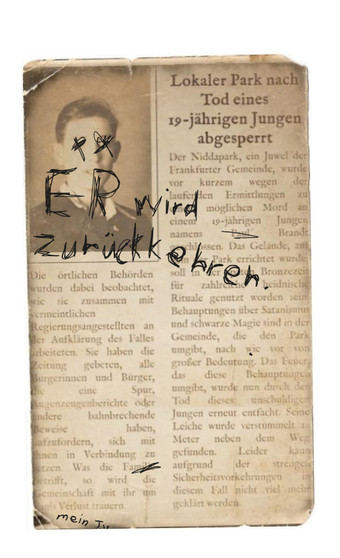 Lokaler Park nach
Tod eines
19-jährigen Jungen
abgesperrt
ER wird
zurückkehren.
Die örtlichen Behörden
wurden dabei beobachtet,
wie sie zusammen mit
vermeintlichen
Regierungsangestellten an
der Aufklärung des Falles
arbeiteten. Sie haben die
Zeitung gebeten, alle
Bürgerinnen und Bürger,
die eine Spur,
Augenzeugenberichte oder
andere bahnbrechende
Beweise haben,
aufzufordern, sich mit
ihnen in Verbindung zu
setzen. Was die
betrifft, so wird die
Gemeinschaft mit ihr um
Verlust trauern.
mein
Der Niddapark, ein Juwel der
Frankfurter Gemeinde, wurde
vor kurzem wegen der
laufenden Ermittlungen zu
möglichen Mord an
einem 19-jährigen Jungen
namens Brandt
Das Gelände, auf
Park errichtet wurde,
soll in der Bronzezeit
für zahlreiche heidnische
Rituale genutzt worden sein.
Behauptungen über Satanismus
und schwarze Magie sind in der
Gemeinde, die den Park
umgibt, nach wie vor von
großer Bedeutung. Das Feuer,
das diese Behauptungen
umgibt, wurde nun durch den
Tod dieses unschuldigen
Jungen erneut entfacht. Seine
Leiche wurde verstümmelt
Meter neben dem Weg
gefunden. Leider kann
aufgrund der strengen
Sicherheitsvorkehrungen in
diesem Fall nicht viel mehr
geklärt werden.